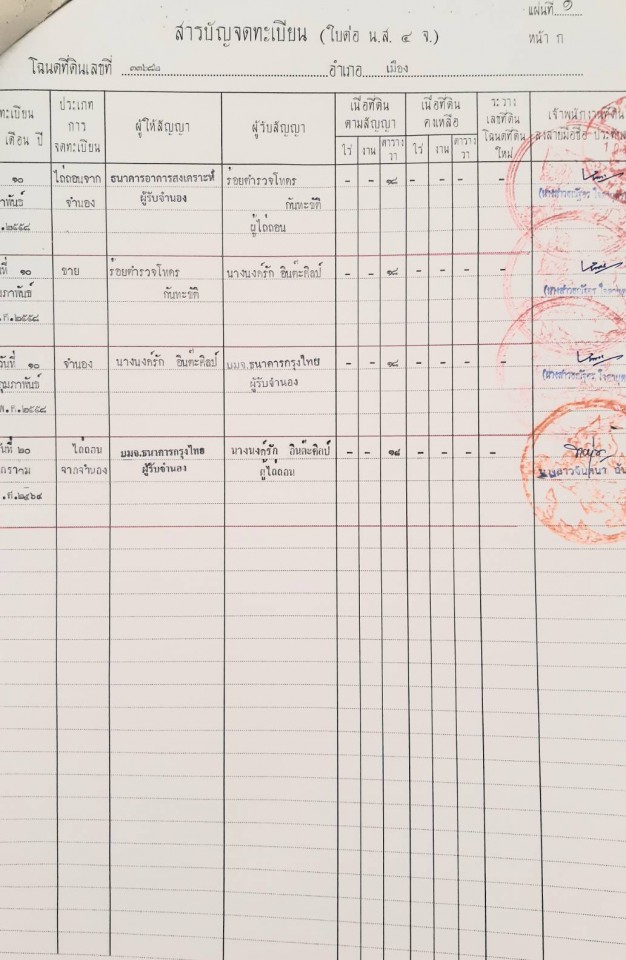 แผ่นที่ ๑
สารบัญจดทะเบียน (ใบต่อ น.ส. ๔ จ.)
หน้า ก
โฉนดที่ดินเลขที่ อำเภอ เมือง
ทะเบียน
เดือน ปี
ประเภท
การ
จดทะเบียน
ผู้ให้สัญญา
ผู้รับสัญญา
เนื้อที่ดิน
ตามสัญญา
ไร่ งาน ตาราง
วา
เนื้อที่ดิน
คงเหลือ
ไร่ งาน ตาราง
วา
ระวาง
เลขที่ดิน
โฉนดที่ดิน
ใหม่
เจ้าพนักงานที่ดิน
ลงลายมือชื่อ
๑๐ ไถ่ถอนจาก ธนาคารอาคารสงเคราะห์ ร้อยตำรวจโทตร - - ๑๘ - - - -
าพันธ์ จำนอง ผู้รับจำนอง กันทะขัติ
.๒๕๕๘ ผู้ไถ่ถอน
ที่ ๑๐ ขาย ร้อยตำรวจโทตร นางนงค์รัก อินต๊ะศิลป์ - - ๑๘ - - - -
ุมภาพันธ์ กันทะขัติ
.ศ.๒๕๕๘
วันที่ ๑๐ จำนอง นางนงค์รัก อินต๊ะศิลป์ บมจ.ธนาคารกรุงไทย - - ๑๘ - - - -
กุมภาพันธ์ ผู้รับจำนอง
พ.ศ.๒๕๕๘
วันที่ ๒๐ ไถ่ถอน บมจ.ธนาคารกรุงไทย นางนงค์รัก อินต๊ะศิลป์ - - ๑๘ - - - -
กราคม จากจำนอง ผู้รับจำนอง ผู้ไถ่ถอน
.ศ.๒๕๖๔